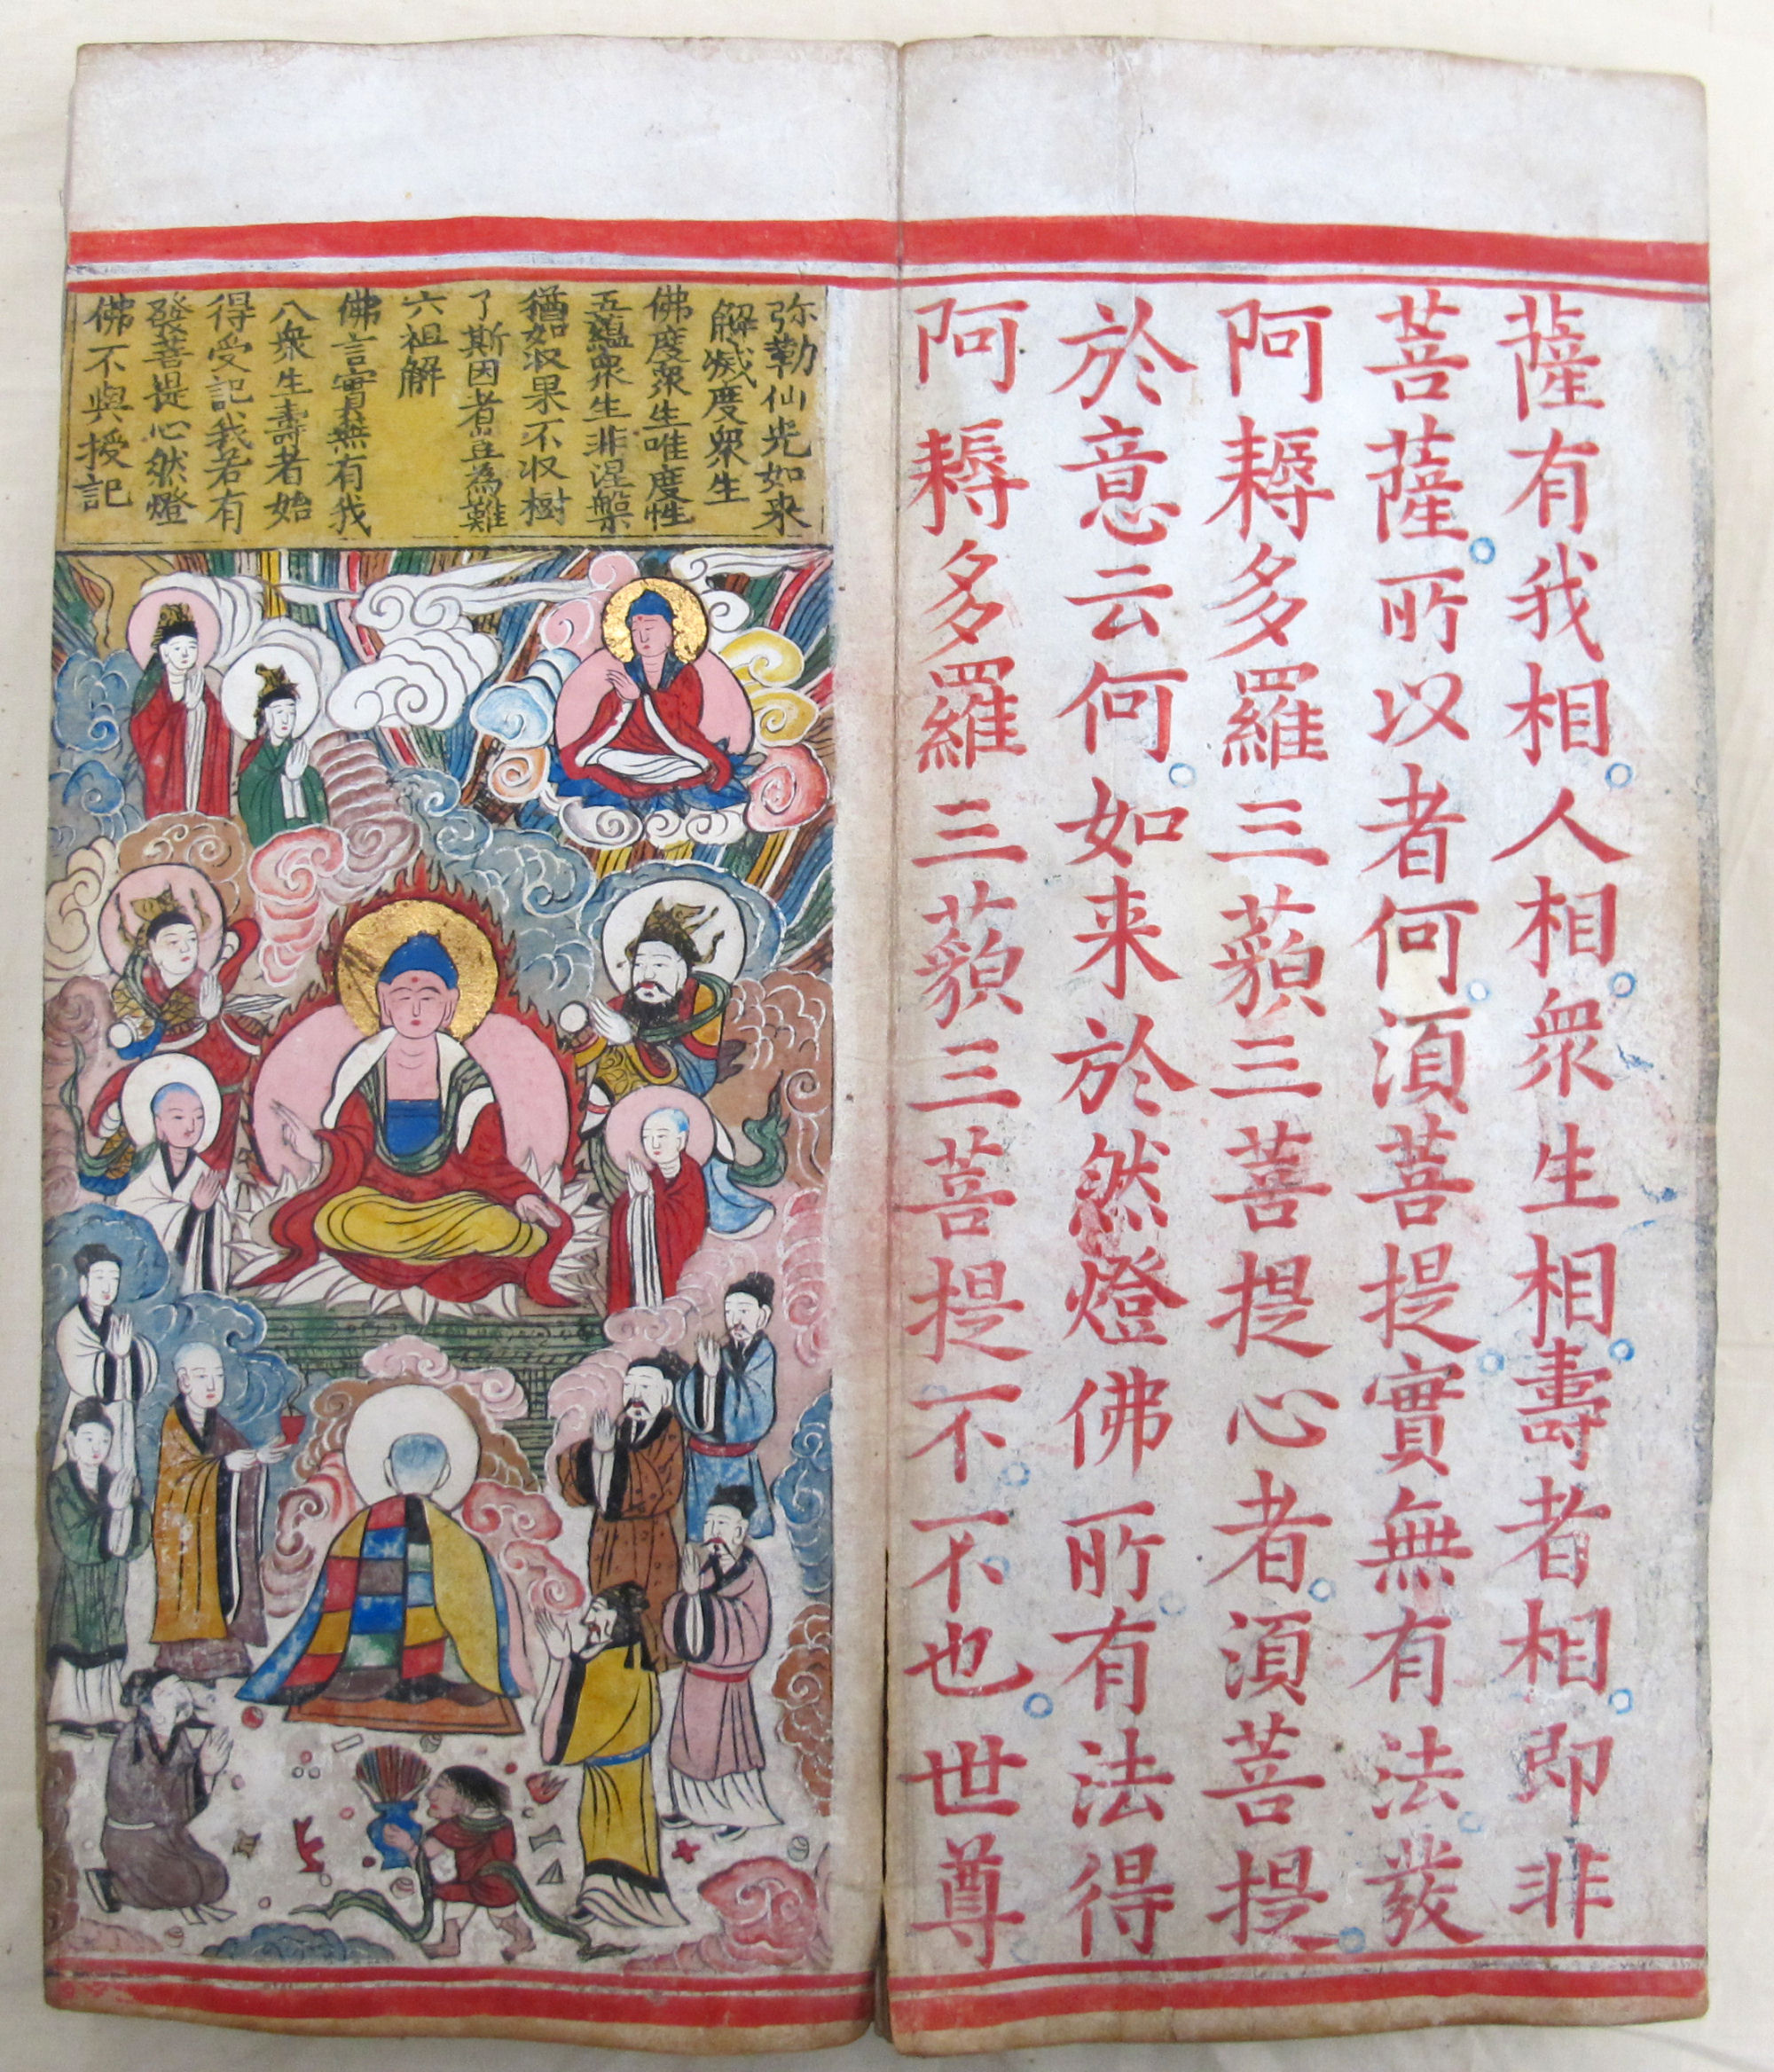 薩有我相。人相。衆生相。壽者相。即非
菩薩。所以者何。湏菩提。實無有法。發
阿耨多羅三藐三菩提心者。湏菩提。
於意云何。如来於然燈佛所。有法得
阿耨多羅三藐三菩提不。不。也。世尊
弥勒仙光如来
解滅度衆生
佛度衆生唯度性
五蘊衆生非涅槃
猶如収果不収樹
了斯因者豈為難
六祖解
佛言實無有我
八衆生壽者始
得受記我若有
發菩提心然燈
佛不與授記